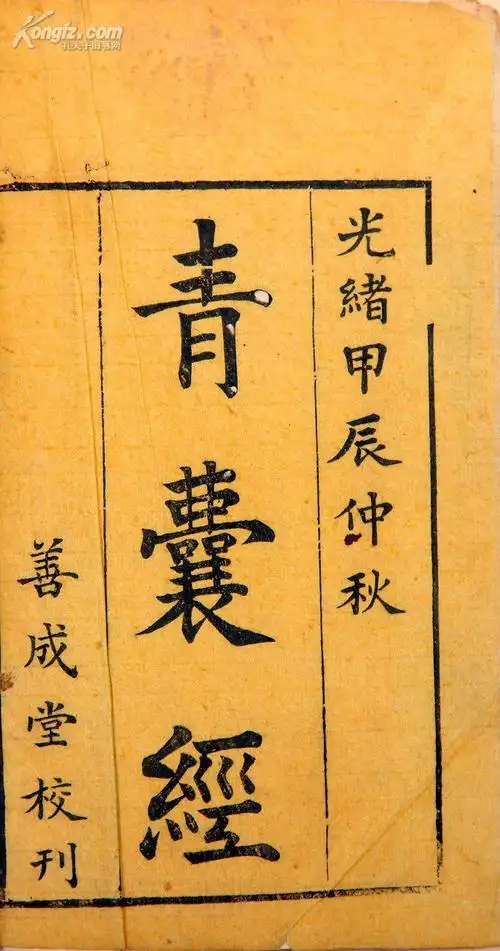 Kongfz.com
孔夫子旧书网
光緒甲辰仲秋
青囊經
善成堂校刊